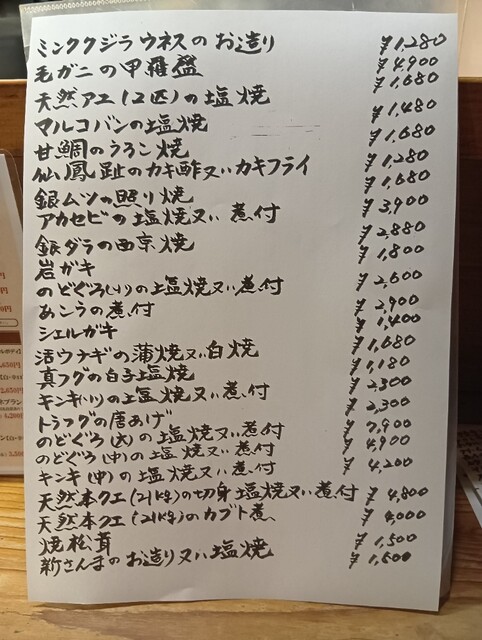 ミンククジラウネスのお造り ¥1,280
毛ガニの甲羅盛 ¥4,900
天然アユ(2匹)の塩焼 ¥1,680
マルコバンの塩焼 ¥1,480
甘鯛のうろこ焼 ¥1,680
仙鳳趾のカキ酢又はカキフライ ¥1,280
銀ムツの照り焼 ¥1,680
アカセビの塩焼又は煮付 ¥3,900
銀ダラの西京焼 ¥2,880
岩ガキ ¥1,800
のどぐろ(小)の塩焼又は煮付 ¥2,600
あこうの煮付 ¥2,900
シェルガキ ¥1,400
活ウナギの蒲焼又は白焼 ¥1,680
真フグの白子塩焼 ¥1,180
キンキ(小)の塩焼又は煮付 ¥2,300
トラフグの唐あげ ¥2,300
のどぐろ(大)の塩焼又は煮付 ¥7,900
のどぐろ(中)の塩焼又は煮付 ¥4,900
キンキ(中)の塩焼又は煮付 ¥4,200
天然本クエ(21kg)の切身塩焼又は煮付 ¥4,800
天然本クエ(21kg)のカブト煮 ¥4,000
焼松茸 ¥1,500
新さんまのお造り又は塩焼 ¥1,500